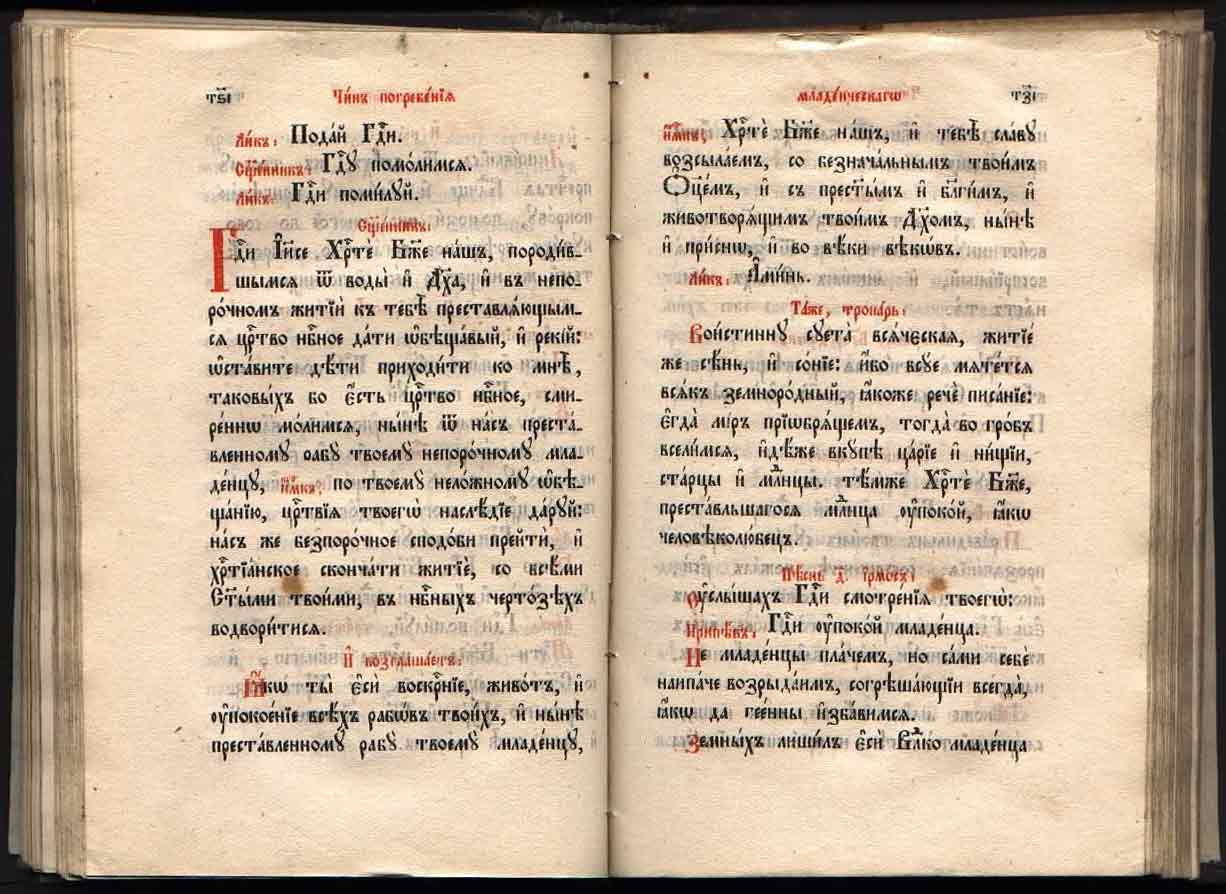 тѕ҃і
Чи́нъ погребе́нїѧ
Ли́къ: Пода́й Гдⷭ҇и.
Сщ҃е́нникъ: Гдⷭ҇ꙋ помо́лимсѧ.
Ли́къ: Гдⷭ҇и поми́лꙋй.
Сщ҃е́нникъ:
Гдⷭ҇и І҆и҃се Хрⷭ҇тѐ Бж҃е на́шъ, породи́в-
шымсѧ ѿ воды̀ и҆ Дх҃а, и҆ въ непо-
ро́чномъ житїѝ къ тебѣ̀ преставлѧ́ющым-
сѧ црⷭ҇тво нбⷭ҇ное да́ти ѡ҆бѣща́вый, и҆ рекі́й:
ѡ҆ста́вите дѣ́ти приходи́ти ко мнѣ̀,
таковы́хъ бо є҆́сть црⷭ҇тво нбⷭ҇ное, сми-
ре́ннѡ мо́лимсѧ, ны́нѣ ѿ на́съ преста́-
вленномꙋ рабꙋ̀ твоемꙋ̀ непоро́чномꙋ мла-
де́нцꙋ, и҆́мкъ, по твоемꙋ̀ нело́жномꙋ ѡ҆бѣ-
ща́нїю, црⷭ҇твїѧ твоегѡ̀ наслѣ́дїе да́рꙋй:
на́съ же безпоро́чное сподо́би прейтѝ, и҆
хрⷭ҇тїа́нское сконча́ти житїѐ, со всѣ́ми
Ст҃ы́ми твои́ми, въ нбⷭ҇ныхъ черто́зѣхъ
водвори́тисѧ.
И҆ возглаша́етъ:
Ꙗ҆́кѡ ты̀ є҆сѝ воскрⷭ҇нїе, живо́тъ, и҆
ᲂу҆покое́нїе всѣ́хъ рабѡ́въ твои́хъ, и҆ ны́нѣ
преста́вленномꙋ рабꙋ̀ твоемꙋ̀ младе́нцꙋ,
младе́нческагѡ
тз҃і
и҆́мкъ, Хрⷭ҇тѐ Бж҃е на́шъ, и҆ тебѣ̀ сла́вꙋ
возсыла́емъ, со безнача́льнымъ твои́мъ
Ѻ҆ц҃е́мъ, и҆ съ прест҃ы́мъ и҆ бл҃ги́мъ, и҆
животворѧ́щимъ твои́мъ Дх҃омъ, ны́нѣ
и҆ при́снѡ, и҆ во вѣ́ки вѣкѡ́въ.
Ли́къ: А҆ми́нь.
Та́же, тропа́рь:
Вои́стиннꙋ сꙋета̀ всѧ́ческаѧ, житїе́
же сѣ́нь, и҆ со́нїе: и҆́бо всꙋ́е мѧте́тсѧ
всѧ́къ земноро́дный, ꙗ҆́коже речѐ писа́нїе:
є҆гда̀ мі́ръ прїѡбрѧ́щемъ, тогда̀ во гро́бъ
всели́мсѧ, и҆дѣ́же вкꙋ́пѣ ца́рїе и҆ ни́щїи,
ста́рцы и҆ млⷣнцы. тѣ́мже Хрⷭ҇тѐ Бж҃е,
преста́вльшагосѧ млⷣнца ᲂу҆поко́й, ꙗ҆́кѡ
человѣколю́бецъ.
Пѣ́снь д҃. і҆рмо́съ:
Оу҆слы́шахъ Гдⷭ҇и смотре́нїѧ твоегѡ̀:
Припѣ́въ: Гдⷭ҇и ᲂу҆поко́й младе́нца.
Не младе́нцы пла́чемъ, но са́ми себѐ
наипа́че возрыда́имъ, согрѣша́ющїи всегда̀,
ꙗ҆́кѡ да гее́нны и҆зба́вимсѧ.
Земны́хъ лиши́лъ є҆сѝ Влⷣко младе́нца